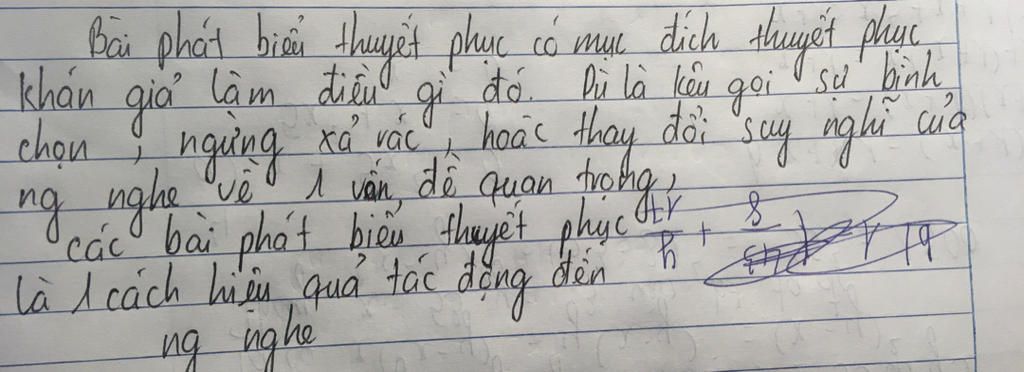 Bài phát biểu thuyết phục có mục đích thuyết phục
khán giả làm điều gì đó. Dù là kêu gọi sự bình
chọn, ngừng xả rác, hoặc thay đổi suy nghĩ của
ng nghe về 1 vấn đề quan trọng,
các bài phát biểu thuyết phục
là 1 cách hiệu quả tác động đến
ng nghe